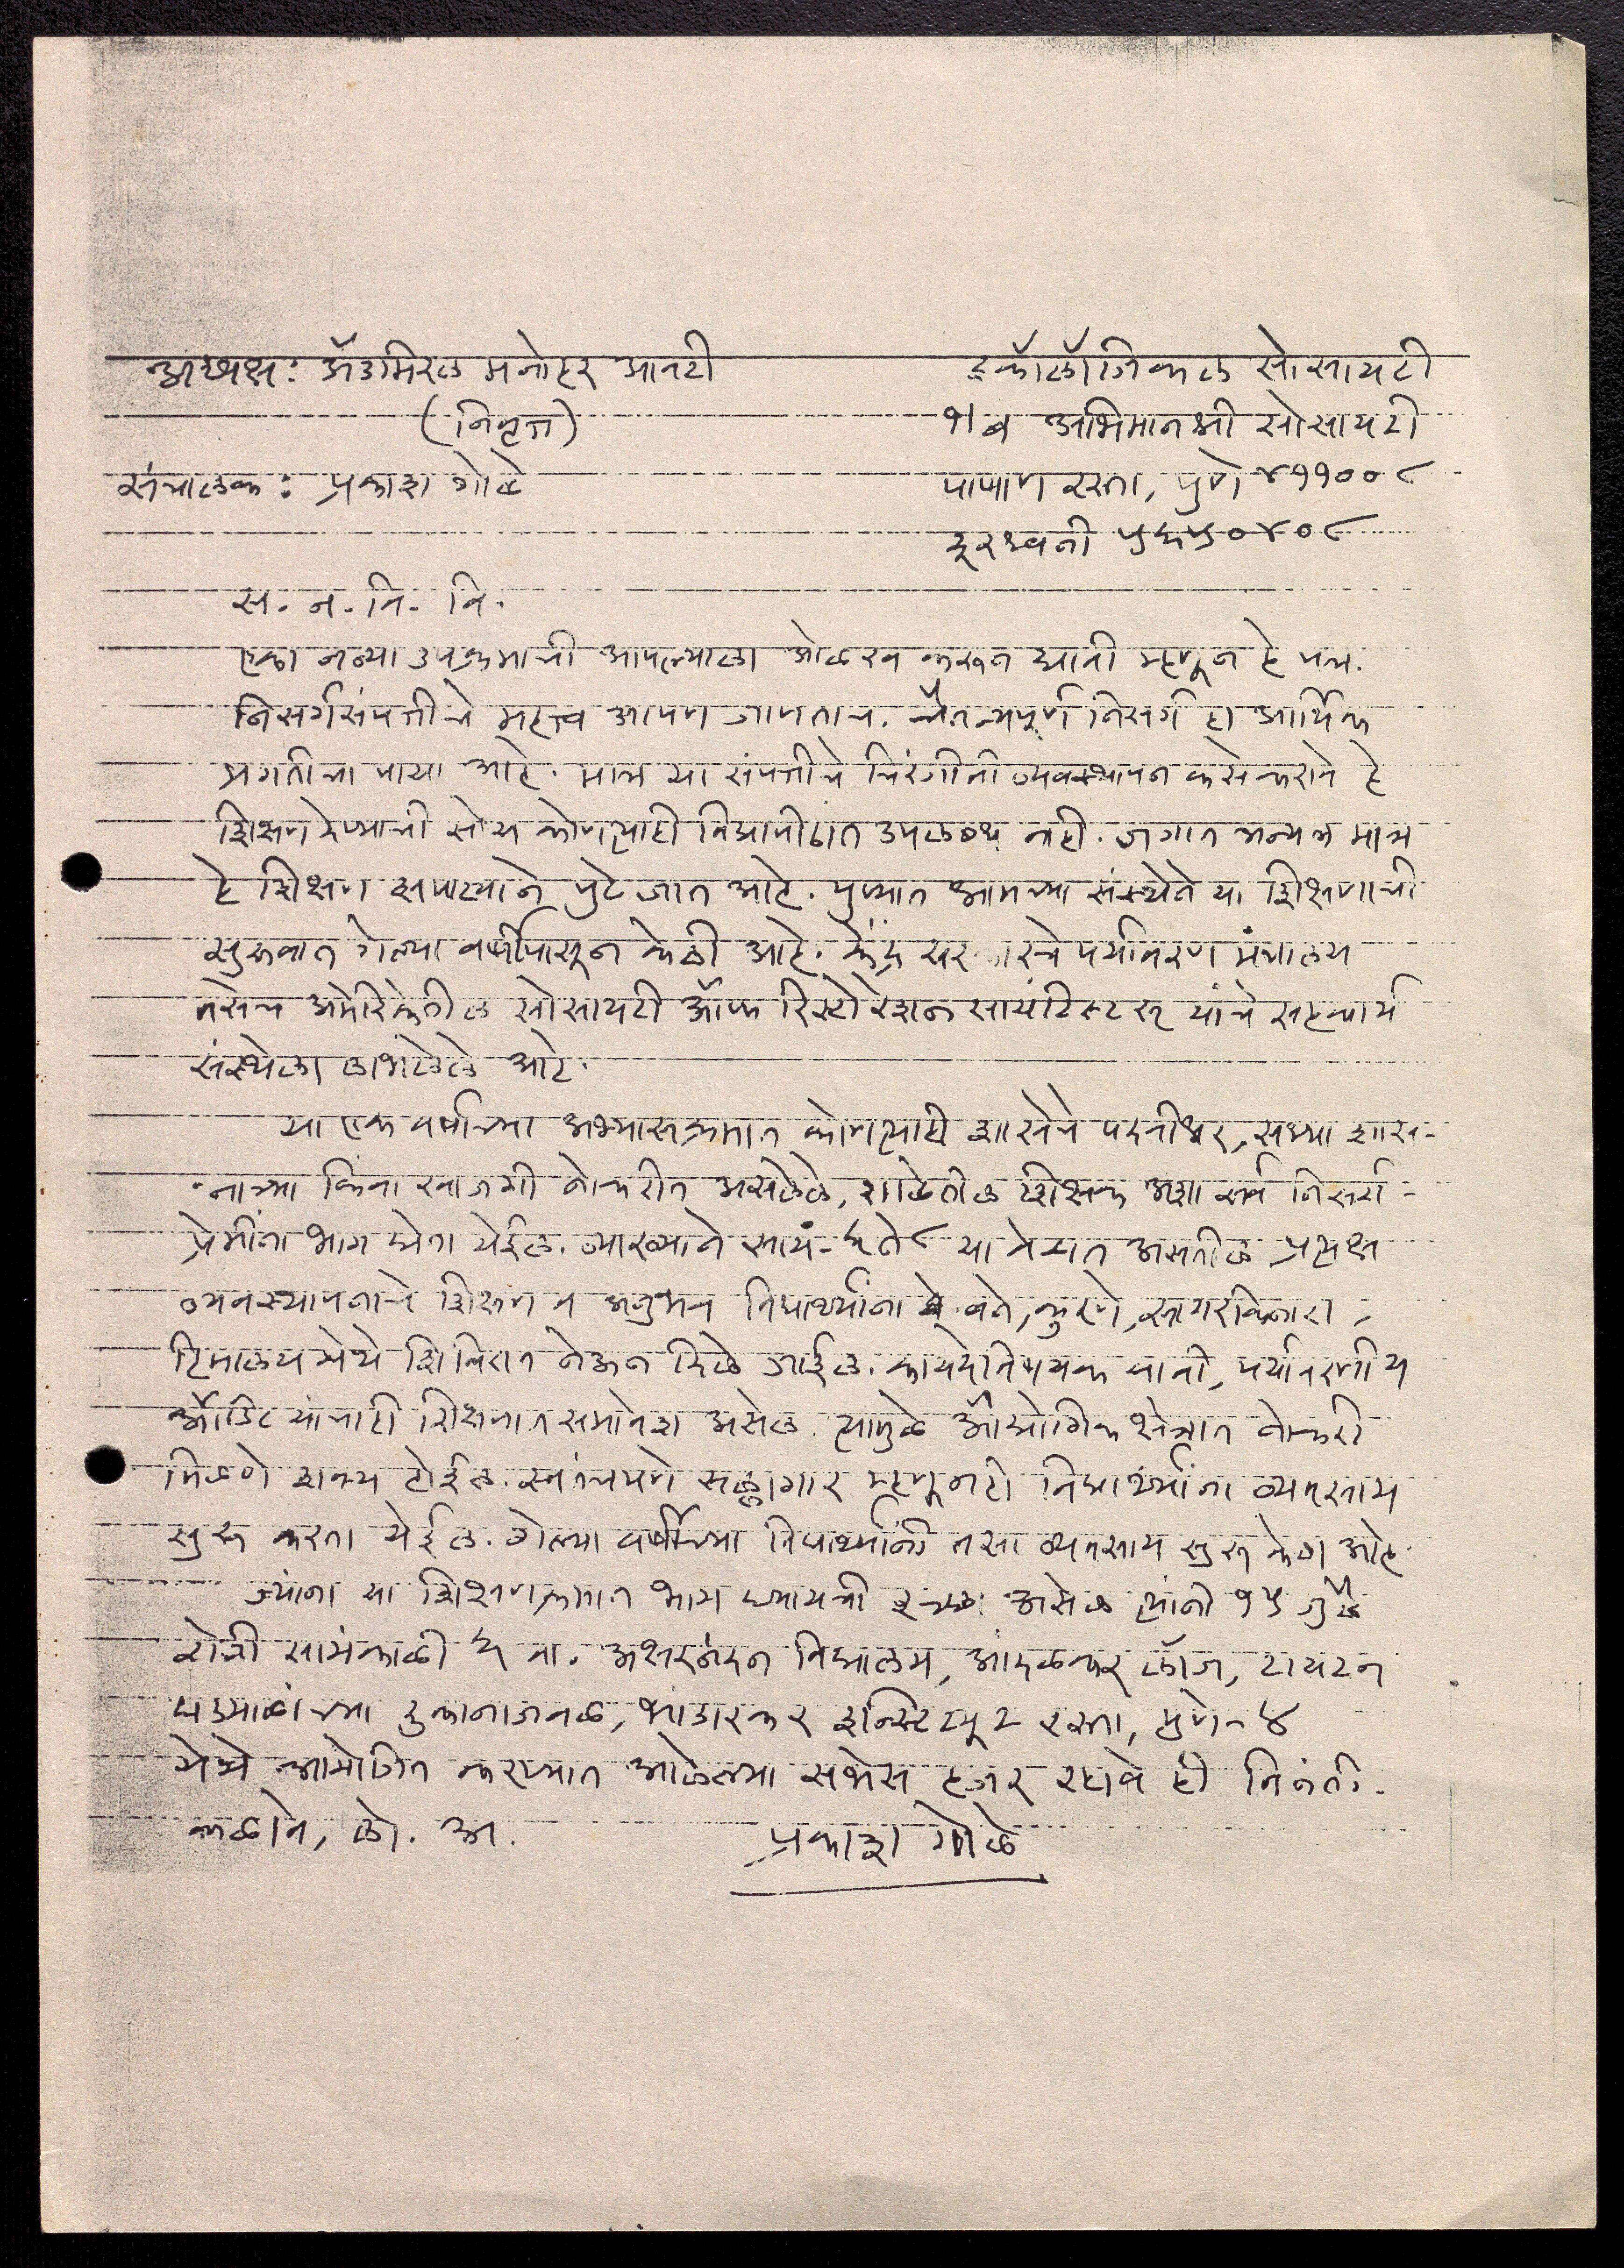 अध्यक्ष: ॲडमिरल मनोहर आवटी
(निवृत्त)
संचालक: प्रकाश गोळे
इकॉलॉजिकल सोसायटी
१/ब अभिमानश्री सोसायटी
पाषाण रस्ता, पुणे ४११००८
दूरध्वनी ५६५०४०८
स. न. वि. वि.
एका नव्या उपक्रमाची आपल्याला ओळख करून द्यावी म्हणून हे पत्र.
निसर्गसंपत्तीचे महत्त्व आपण जाणताच. चैतन्यपूर्ण निसर्ग हा आर्थिक
प्रगतीचा पाया आहे. मात्र या संपत्तीचे चिरंगीवी व्यवस्थापन कसे करावे हे
शिक्षण देण्याची सोय कोणत्याही विद्यापीठात उपलब्ध नाही. जगात अन्यत्र मात्र
हे शिक्षण झपाट्याने पुढे जात आहे. पुण्यात आमच्या संस्थेने या शिक्षणाची
सुरुवात गेल्या वर्षीपासून केली आहे. केंद्र सरकारचे पर्यावरण मंत्रालय
तसेच अमेरिकेतील सोसायटी ऑफ रिस्टोरेशन सायंटिस्टस् यांचे सहकार्य
संस्थेला लाभलेले आहे.
या एक वर्षाच्या अभ्यासक्रमात कोणत्याही शाखेचे पदवीधर, सध्या शास-
-नाच्या किंवा खाजगी नोकरीत असलेले, शाळेतील शिक्षक अशा सर्व निसर्ग-
प्रेमींना भाग घेता येईल. व्याख्याने सायं. ६ ते ८ या वेळात असतील प्रत्यक्ष
व्यवस्थापनाचे शिक्षण व अनुभव विद्यार्थ्यांना वने, कुरणे, सागरकिनारा,
हिमालय येथे शिबिरात नेऊन दिले जाईल. कायदेविषयक बाबी, पर्यावरणीय
ऑडिट यांचाही शिक्षणात समावेश असेल. त्यामुळे औद्योगिक क्षेत्रात नोकरी
मिळणे शक्य होईल. स्वतंत्रपणे सल्लागार म्हणूनही विद्यार्थ्यांना व्यवसाय
सुरू करता येईल. गेल्या वर्षीच्या विद्यार्थ्यांनी तसा व्यवसाय सुरू केला आहे.
ज्यांना या शिक्षणक्रमात भाग घ्यायची इच्छा असेल त्यांनी १५ जुलै
रोजी सायंकाळी ६ वा. अक्षरनंदन विद्यालय, आंदळकर लॉज, टायटन
घड्याळांच्या दुकानाजवळ, भांडारकर इन्स्टिट्यूट रस्ता, पुणे-४
येथे आयोजित करण्यात आलेल्या सभेस हजर रहावे ही विनंती.
कळावे, लो. अ.
प्रकाश गोळे